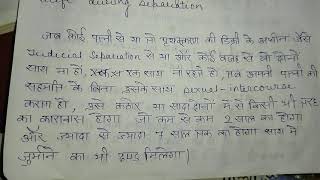 wife during separation
जब कोई पत्नी से या तो पृथक्करण की डिक्री के अधीन जैसे
Judicial Separation से या और कोई वजह से वह दोनों
साथ ना हो, एक साथ ना रहते हो, तब अपनी पत्नी की
सहमति के बिना, उसके साथ sexual-intercourse
करता हो, उसे कठोर या सादा दोनों में से किसी भी तरह
का कारावास होगा जो कम से कम 2 साल का होगा
और ज्यादा से ज्यादा 7 साल तक का होगा साथ में
जुर्माने का भी दण्ड मिलेगा।